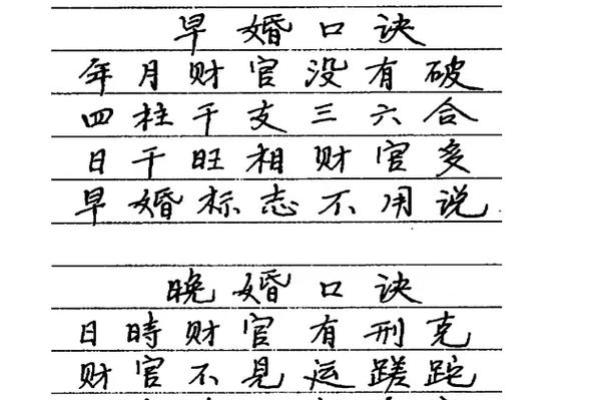 早婚口诀
年月财官没有破
四柱干支三六合
日干旺相财官多
早婚标志不用说
晚婚口诀
日時财官有刑克
财官不见运蹉跎